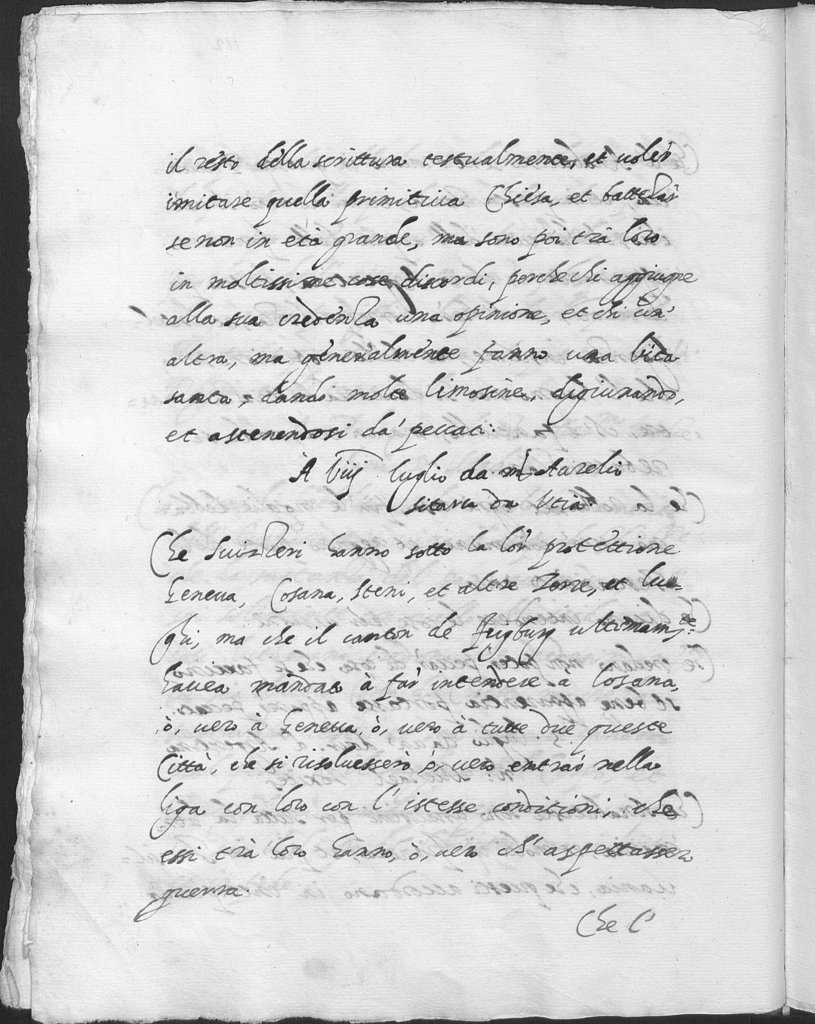 il resto della scrittura testualmente, et voler
imitare quella primitiva Chiesa, et battezar
se non in età grande, ma sono poi trà loro
in moltissime cose discordi, perche chi aggiugne
alla sua credenza una opinione, et chi un'
altra, ma generalmente fanno una vita
santa, dando molte limosine, digiunando,
et astenendosi da' peccati.
A viij luglio da m. Aurelio
sitava da
Che Suizzeri hanno sotto la lor protettione
Geneva, Losana, Steni, et altre Terre, et luo-
ghi, ma che il canton de ultimam.te
havea mandato à far intendere à Losana,
ò, vero à Geneva, ò, vero à tutte due queste
Città, che si risolvessero ò, vero entrar nella
liga con loro con l'istesse conditioni, che
essi trà loro hanno, ò, vero ch'aspettassero
guerra.
Che l'